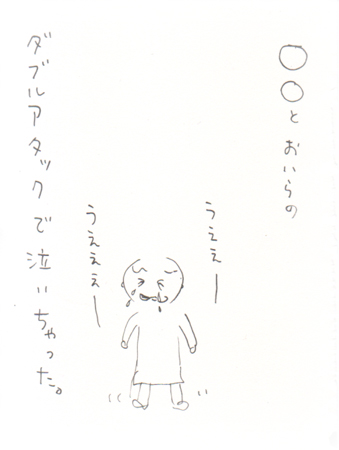 ○○とおいらの
うええー
うええええー
ダブルアタックで泣いちゃった。